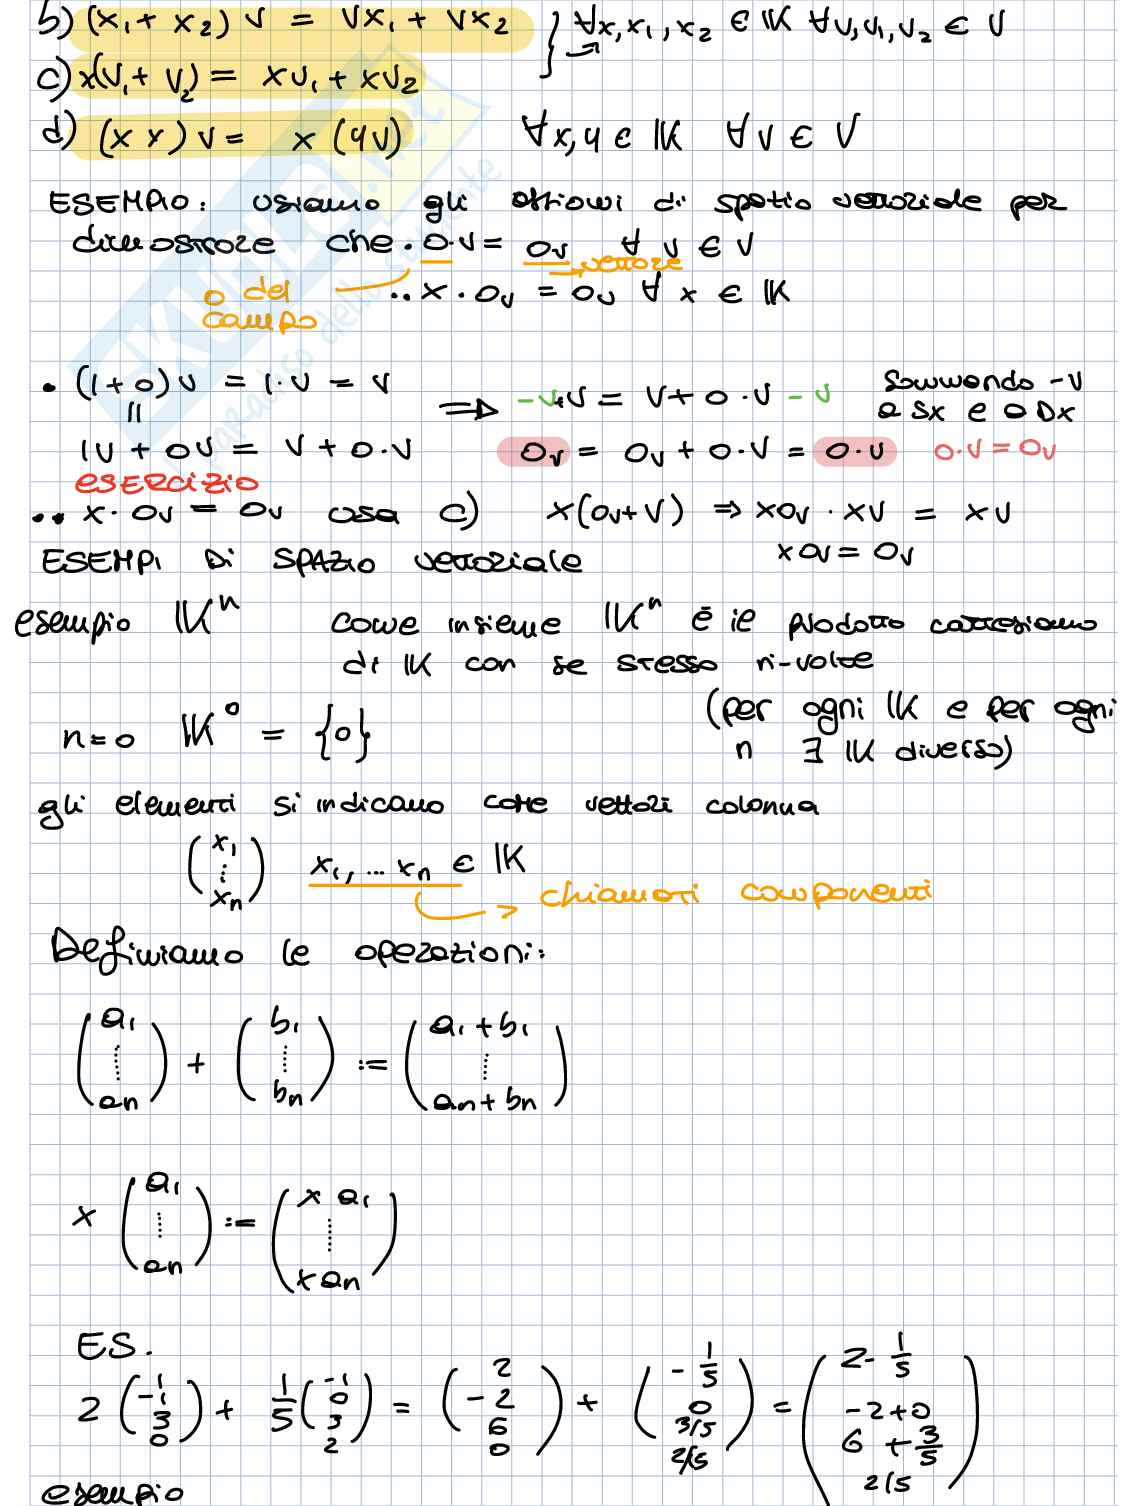 b) (x₁ + x₂) v = vx₁ + vx₂ } ∀x, x₁, x₂ ∈ 𝕂 ∀v, v₁, v₂ ∈ V
c) x(v₁ + v₂) = xv₁ + xv₂
d) (x x) v = x (yv) ∀x, y ∈ 𝕂 ∀v ∈ V
ESEMPIO: usiamo gli assiomi di spazio vettoriale per
dimostrare che • 0·v = 0v ∀ v ∈ V
vettore
0 del
campo
•• x · 0v = 0v ∀ x ∈ 𝕂
• (1+0)v = 1·v = v
=
1v + 0v = v + 0·v
⇒ -v+v = v + 0·v - v
sommando -v
a sx e a dx
0v = 0v + 0·v = 0·v 0·v = 0v
esercizio
•• x·0v = 0v usa c) x(0v+v) ⇒ x0v · xv = xv
x0v = 0v
ESEMPI DI SPAZIO vettoriale
esempio 𝕂ⁿ come insieme 𝕂ⁿ è il prodotto cartesiano
di 𝕂 con se stesso n-volte
n=0 𝕂⁰ = {0}
(per ogni 𝕂 e per ogni
n ∃ 𝕂 diverso)
gli elementi si indicano come vettori colonna
(x₁ ⋮ xn) x₁, ... xn ∈ 𝕂
chiamati componenti
Definiamo le operazioni:
(a₁ ⋮ an) + (b₁ ⋮ bn) := (a₁ + b₁ ⋮ an + bn)
x (a₁ ⋮ an) := (x a₁ ⋮ x an)
ES.
2 (1 -1 3 0) + 1/5 (-1 0 3 2) = (2 -2 6 0) + (-1/5 0 3/5 2/5) = (2-1/5 -2+0 6+3/5 2/5)
esempio